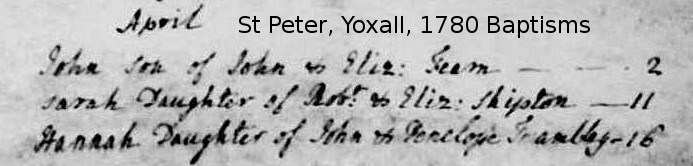 April St Peter, Yoxall, 1780 Baptisms
John son of John & Eliz: Fearn — — - 2
Sarah Daughter of Robt. & Eliz: Shipton — 11
Hannah Daughter of John & Penelope Trambley - 16